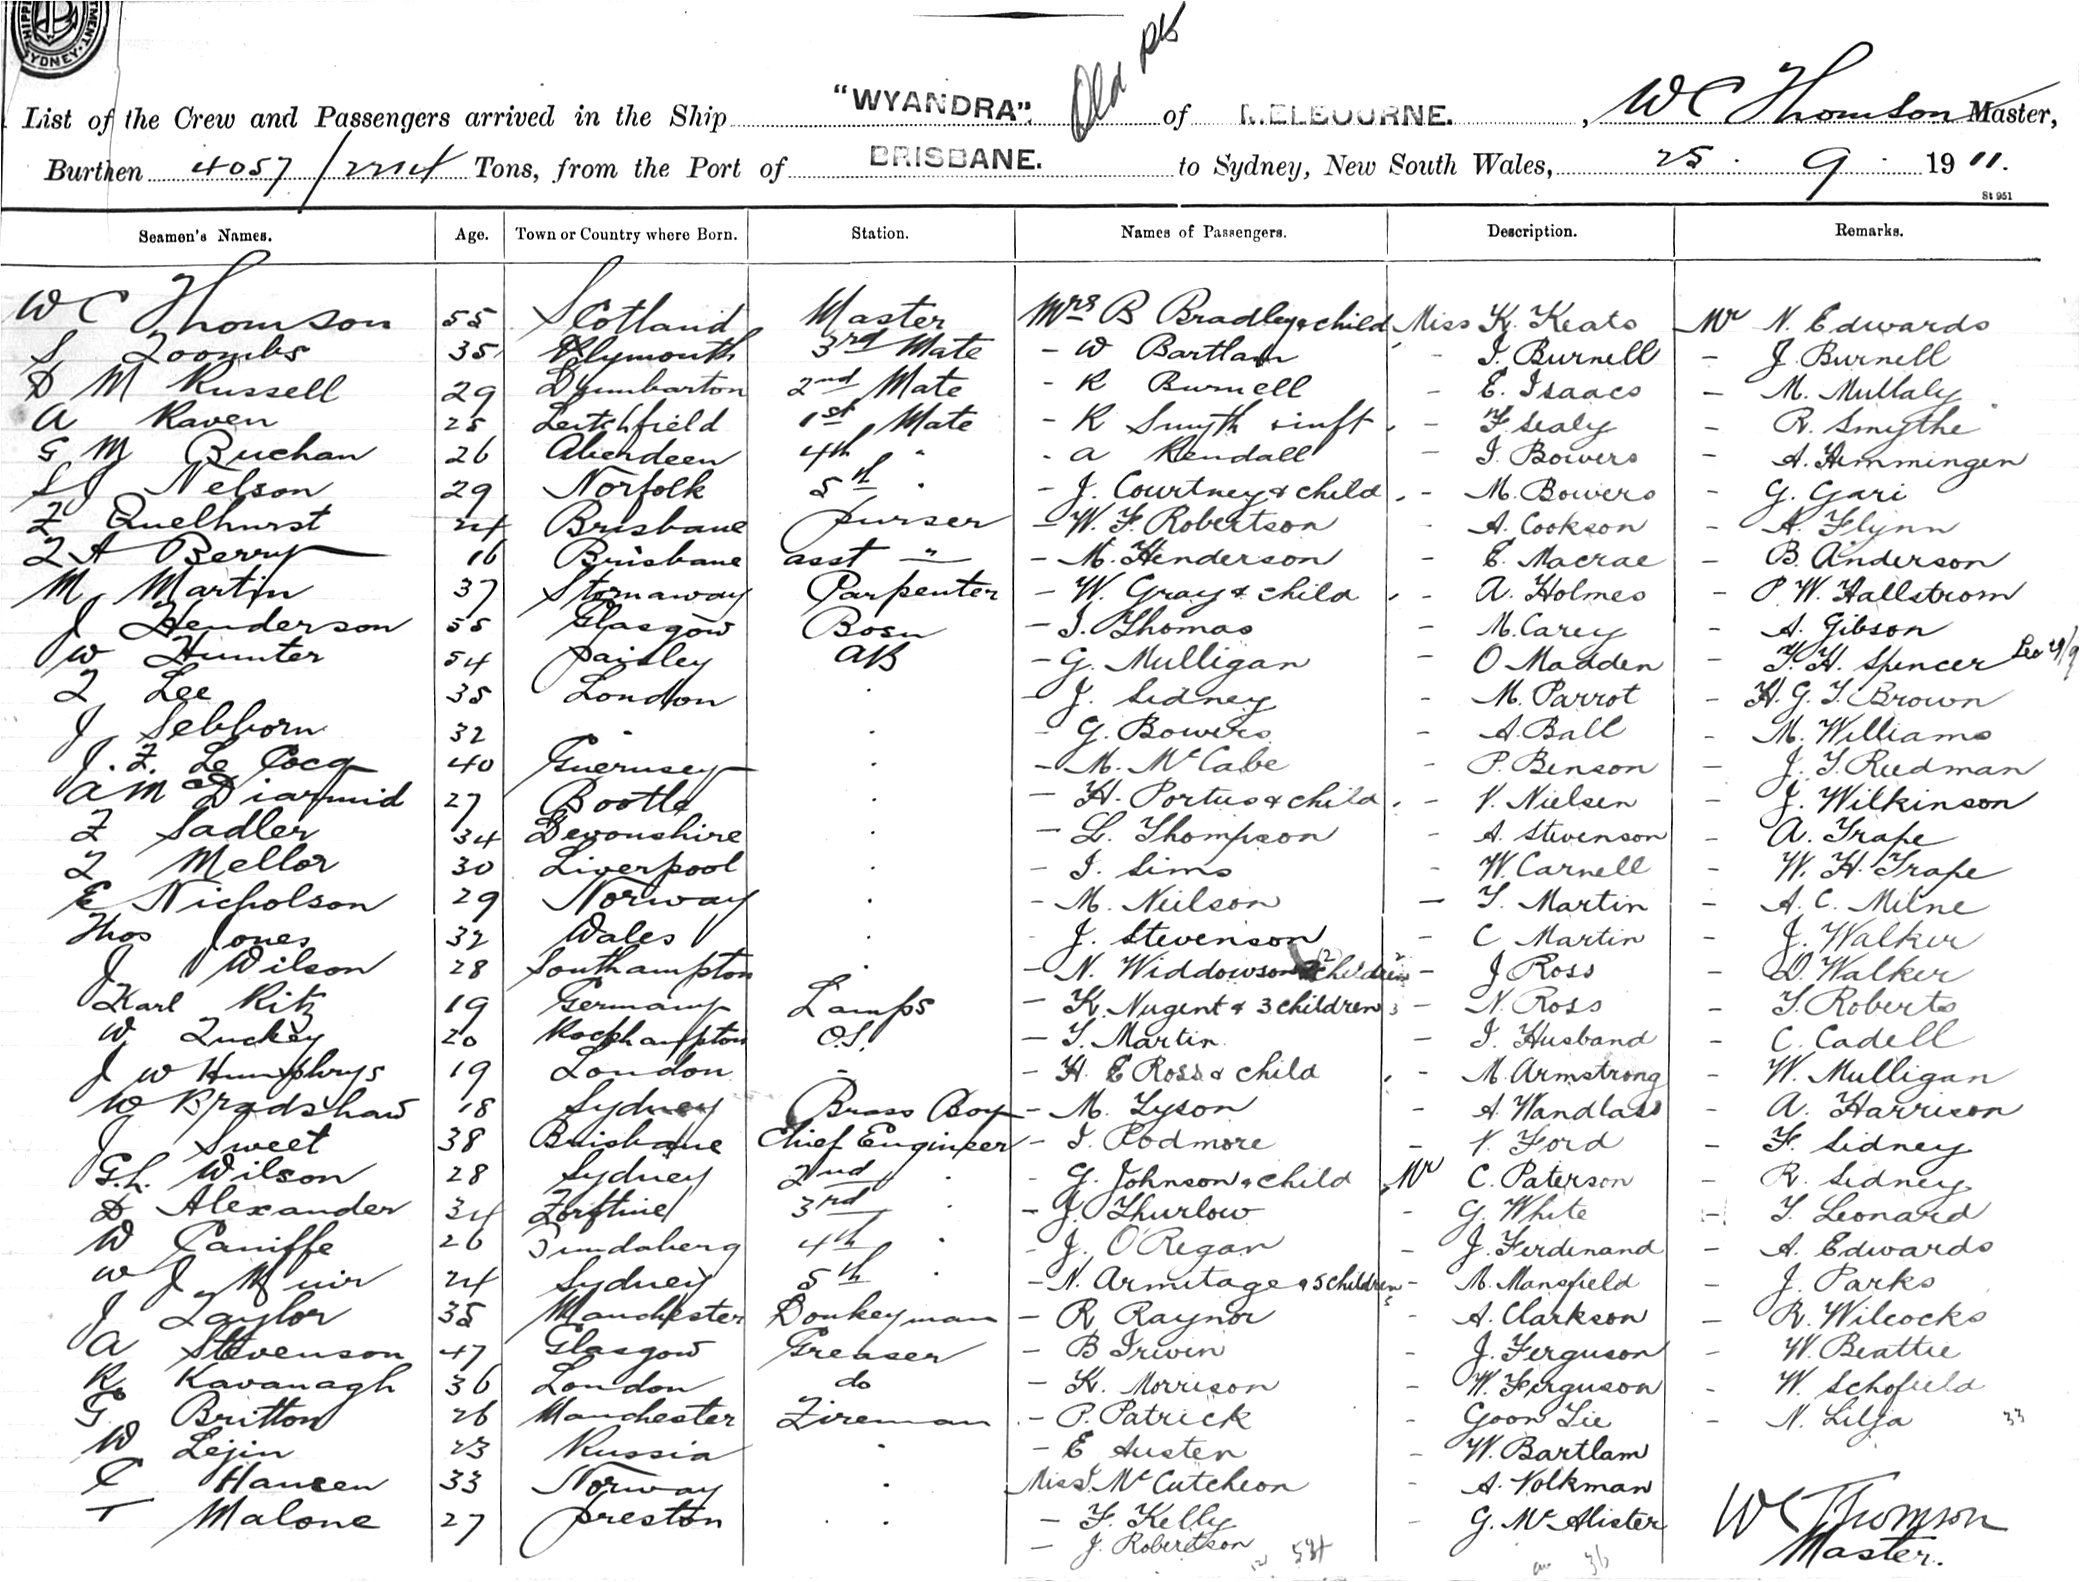 SYDNEY
"WYANDRA". Old
List of the Crew and Passengers arrived in the Ship of MELBOURNE. , W C Thomson Master,
Burthen 4057/ Tons, from the Port of BRISBANE. to Sydney, New South Wales, 25 . 9 . 1911.
St 951
Seamen's Names. Age. Town or Country where Born. Station. Names of Passengers. Description. Remarks.
W C Thomson 55 Scotland Master Mrs B Bradley & child Miss K. Keats Mr N. Edwards
S Toombs 35 Plymouth 3rd Mate - W Bartlam - I. Burnell - J. Burnell
D M Russell 29 Dumbarton 2nd Mate - R Burnell - E. Isaacs - M. Mullaly
A Raven 25 1st Mate - R Smyth & inft - F. Sealy - R. Smythe
G M Buchan 26 Aberdeen 4th " - A Kendall - I. Bowers - A. Hemmingen
S J Nelson 29 Norfolk 5th " - J. Courtney & child - M. Bowers - G. Gari
Quelhurst 24 Brisbane purser - W. F. Robertson - A. Cookson - A. Flynn
Berry 16 Brisbane asst " - M. Henderson - E. Macrae - B. Anderson
M Martin 37 Stornaway Carpenter - W. Gray & child - A. Holmes - P. W. Hallstrom
J Henderson 55 Glasgow Bosn - I. Thomas - M. Carey - A. Gibson
W Hunter 54 Paisley AB - G. Mulligan - O Madden - T. H. Spencer
Lee 35 London - J. Sidney - M. Parrot - H. G. T. Brown
J Sebborn 32 " - G. Bowers - A. Ball - M. Williams
J. F. Le Cocq 40 Guernsey - M. McCabe - P. Benson - J. T. Redman
A McDiarmid 27 Bootle - H. Portus & child - V. Nielsen - J. Wilkinson
F Sadler 34 Devonshire - L. Thompson - A. Stevenson - A. Trape
Mellor 30 Liverpool - I. Sims - W. Carnell - W. H. Trape
E Nicholson 29 Norway - M. Neilson - T. Martin - A. C. Milne
Thos Jones 32 Wales - J. Stevenson - C Martin - J. Walker
J Wilson 28 Southampton - N. Widdowson & 2 children - J Ross - D. Walker
Karl Ritz 19 Germany Lamps - K. Nugent & 3 children - N. Ross - T. Roberts
W Tuckey 20 Rockhampton O.S. - T. Martin - I. Husband - C. Cadell
J W Humphrys 19 London - H. E Ross & child - M. Armstrong - W. Mulligan
W Bradshaw 18 Sydney Brass Boy - M. Tyson - A. Wandlass - A. Harrison
J Sweet 38 Brisbane Chief Engineer - I. Podmore - V. Ford - F. Sidney
G. L. Wilson 28 Sydney 2nd " - G. Johnson & child Mr C. Paterson - R. Sidney
D Alexander 34 3rd " - J. Thurlow - G. White - T. Leonard
W Canniffe 26 Bundaberg 4th " - J. O'Regan - J. Ferdinand - A. Edwards
W J Muir 24 Sydney 5th " - N. Armitage & 5 children - M. Mansfield - J. Parks
J Taylor 35 Manchester Donkeyman - R Raynor - A. Clarkson - R. Wilcocks
A Stevenson 47 Glasgow Greaser - B Irwin - J. Ferguson - W. Beattie
R Kavanagh 36 London do - K. Morrison - W. Ferguson - W. Schofield
G. Britton 26 Manchester Fireman - P. Patrick - Goon Lie - N. Lilja 33
W Lejin 23 Russia - E Austen - W. Bartlam
C Hansen 33 Norway Miss I. McCutcheon - A. Volkman
T Malone 27 Preston - F. Kelly - G. McAlister W C Thomson
- J. Robertson 36 Master.